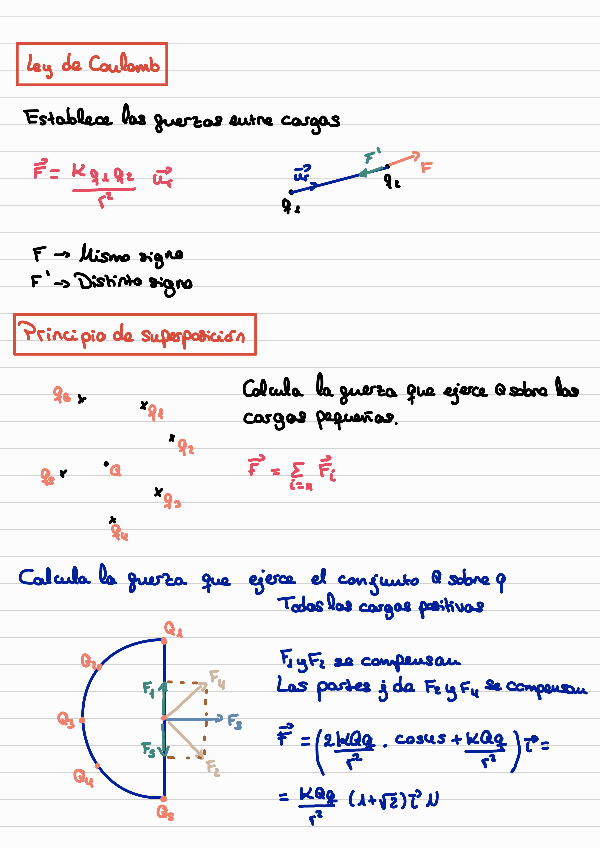 Ley de Coulomb
Establece las fuerzas entre cargas
F⃗ = K q₁ q₂ / r² u⃗r
u⃗r F' F
q₁ q₂
F → Mismo signo
F' → Distinto signo
Principio de superposición
q₆ q₁
q₂
q₅ Q
q₃
q₄
Calcula la fuerza que ejerce Q sobre las
cargas pequeñas.
F⃗ = Σ F⃗i
i=n
Calcula la fuerza que ejerce el conjunto Q sobre q
Todas las cargas positivas
Q₁
Q₂ F₁ F₄
Q₃ F₃
Q₄ F₅ F₂
Q₅
F₁ y F₂ se compensan
Las partes j da F₂ y F₄ se compensan
F⃗ = (2KQq / r² · cos45 + KQq / r²) i⃗ =
= KQq / r² (1+√2) i⃗ N